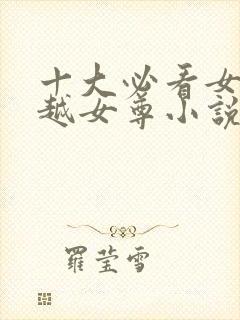 十大必看女
越女尊小說
羅瑩雪